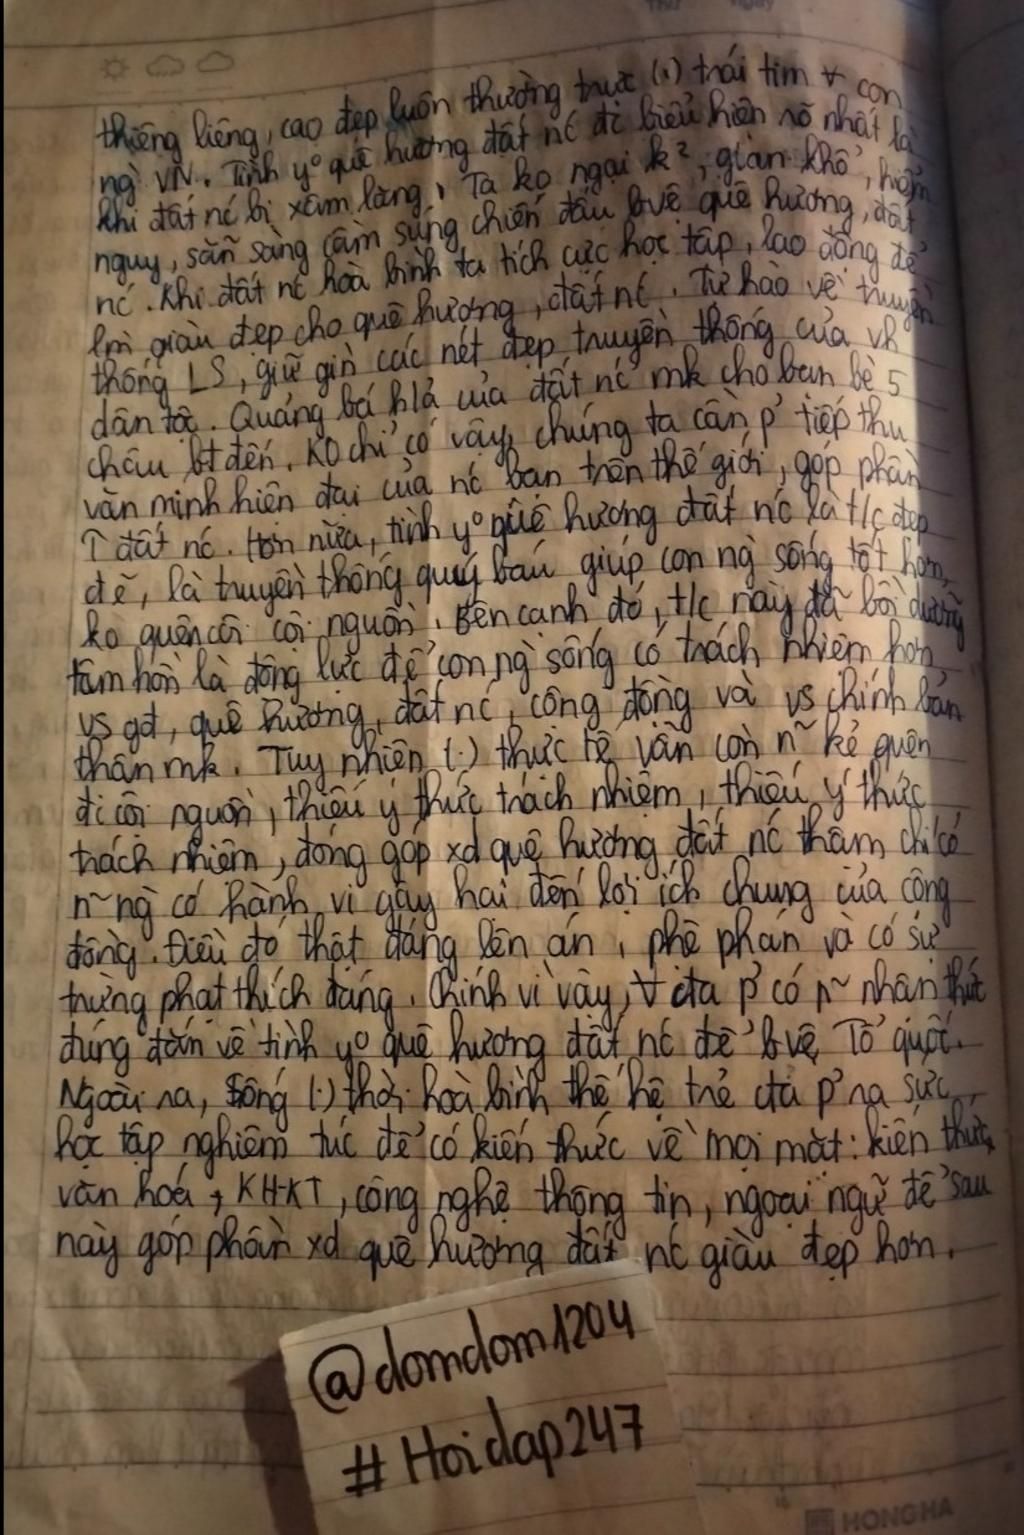 Thứ Ngày
thiêng liêng, cao đẹp luôn thường trực (.) trái tim ∀ con
ng` VN. Tình yº quê hương đất nc đc biểu hiện rõ nhất là
khi đất nc bị xâm lăng, Ta ko ngại k², gian khổ, hiểm
nguy, sẵn sàng cầm súng chiến đấu bvệ quê hương, đất
nc. Khi đất nc hoà bình ta tích cực học tập, lao động để
lm giàu đẹp cho quê hương, đất nc. Tự hào về truyền
thống LS, giữ gìn các nét đẹp truyền thống của vh
dân tộc. Quảng bá h/ả của đất nc mk cho bạn bè 5
châu bt đến. Ko chỉ có vậy, chúng ta cần p' tiếp thu
văn minh hiện đại của nc bạn trên thế giới, góp phần
↑ đất nc. Hơn nữa, tình yº quê hương đất nc là t/c đẹp
đẽ, là truyền thống quý báu giúp con ng` sống tốt hơn,
ko quên cội nguồn. Bên cạnh đó, t/c này đã bồi dưỡng
tâm hồn là động lực để con ng` sống có trách nhiệm hơn
vs gđ, quê hương, đất nc, cộng đồng và vs chính bản
thân mk. Tuy nhiên (.) thực tế vẫn còn n~ kẻ quên
đi cội nguồn, thiếu ý thức trách nhiệm, thiếu ý thức
trách nhiệm, đóng góp xd quê hương đất nc thậm chí có
n~ ng` có hành vi gây hại đến lợi ích chung của cộng
đồng. Điều đó thật đáng lên án, phê phán và có sự
trừng phạt thích đáng. Chính vì vậy, ∀ cta p' có n~ nhận thức
đúng đắn về tình yº quê hương đất nc để bvệ Tổ quốc.
Ngoài ra, sống (.) thời hoà bình thế hệ trẻ cta p' ra sức
học tập nghiêm túc để có kiến thức về mọi mặt: kiến thức
văn hoá, KH-KT, công nghệ thông tin, ngoại ngữ để sau
này góp phần xd quê hương đất nc giàu đẹp hơn.
@domdom1204
# Hoidap247
HONG HA